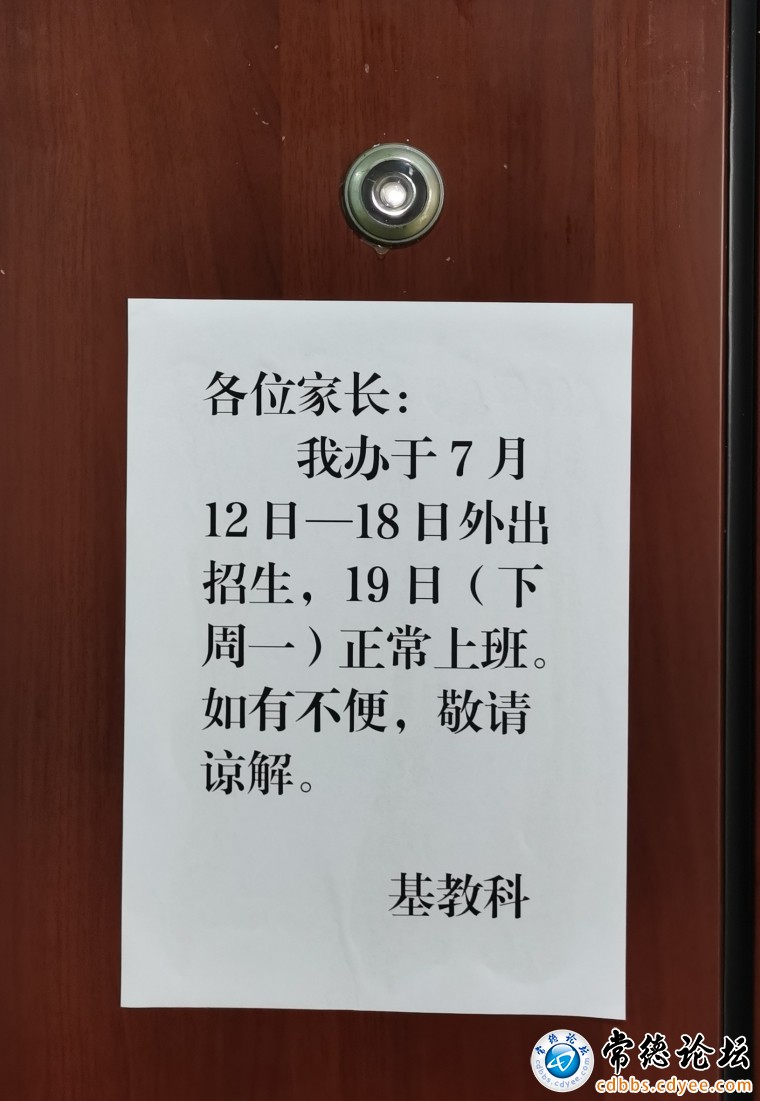 各位家长：
我办于7月
12日—18日外出
招生，19日（下
周一）正常上班。
如有不便，敬请
谅解。
基教科
常德论坛
cdbbs.cdyee.com
常德论坛
cdbbs.cdyee.com